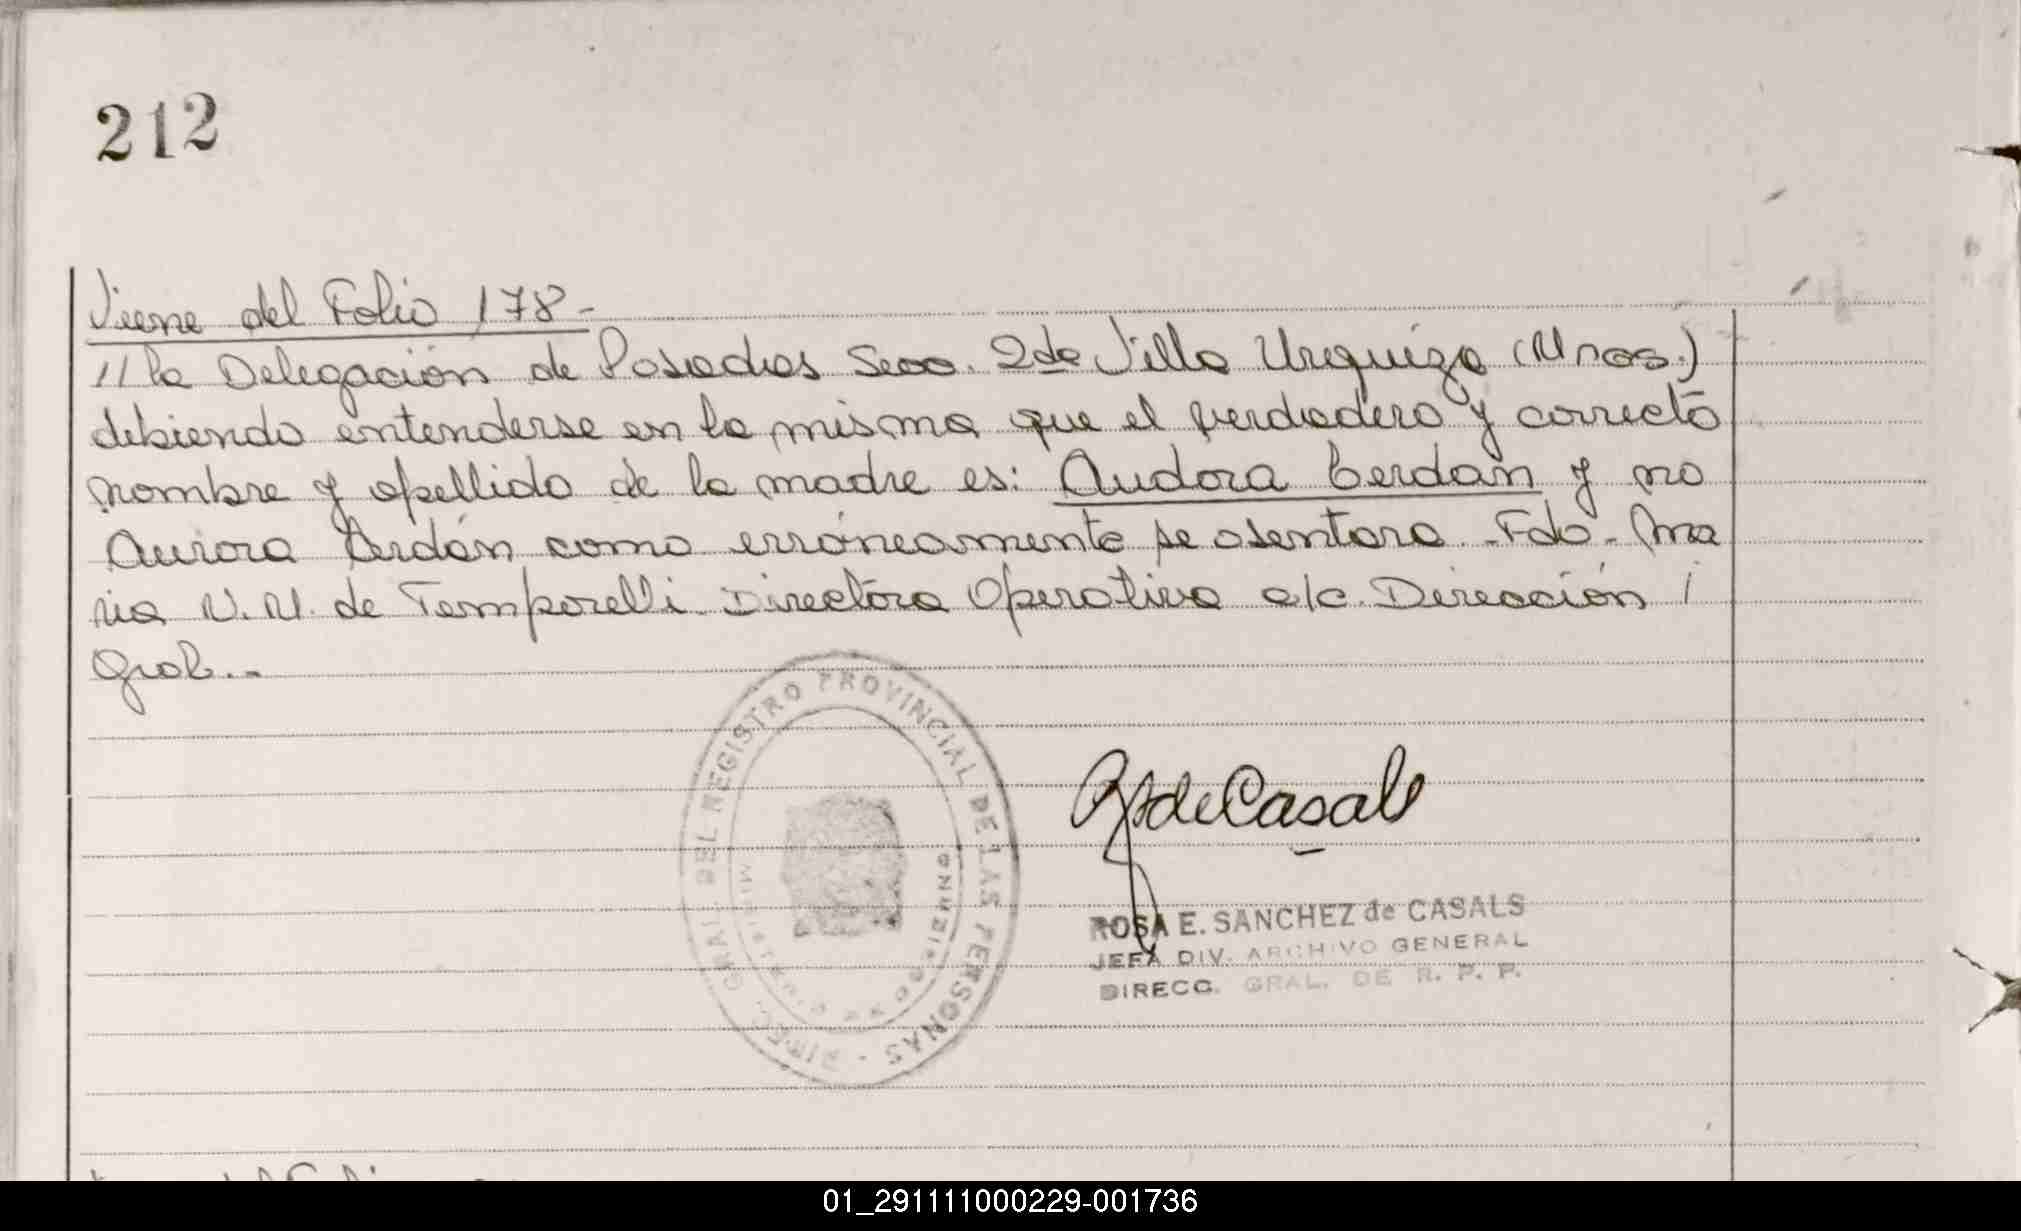 212
Viene del Folio 178-
// la Delegación de Posadas Secc. 2da Villa Urquiza (Mnes.)
debiendo entenderse en la misma que el verdadero y correcto
nombre y apellido de la madre es: Audora Cerdan y no
Aurora Cerdán como erróneamente se asentara. -Fdo- Ma
ria N. N. de Temporelli. Directora Operativa a/c. Dirección
Gral..-
DIREC. GRAL. DEL REGISTRO PROVINCIAL DE LAS PERSONAS -
MINISTERIO DE GOBIERNO
R S de Casals
ROSA E. SANCHEZ de CASALS
JEFA DIV. ARCHIVO GENERAL
DIRECC. GRAL. DE R. P. P.
01_291111000229-001736